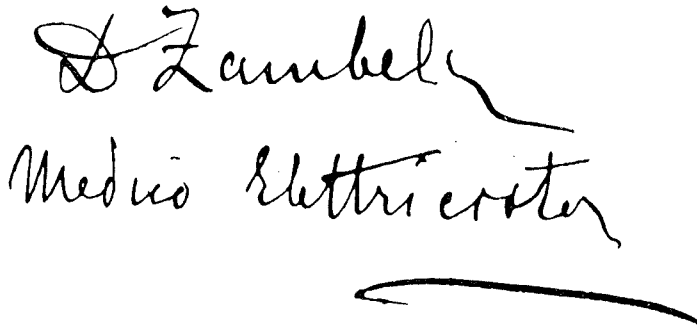 D Zambely
Medico Elettricista